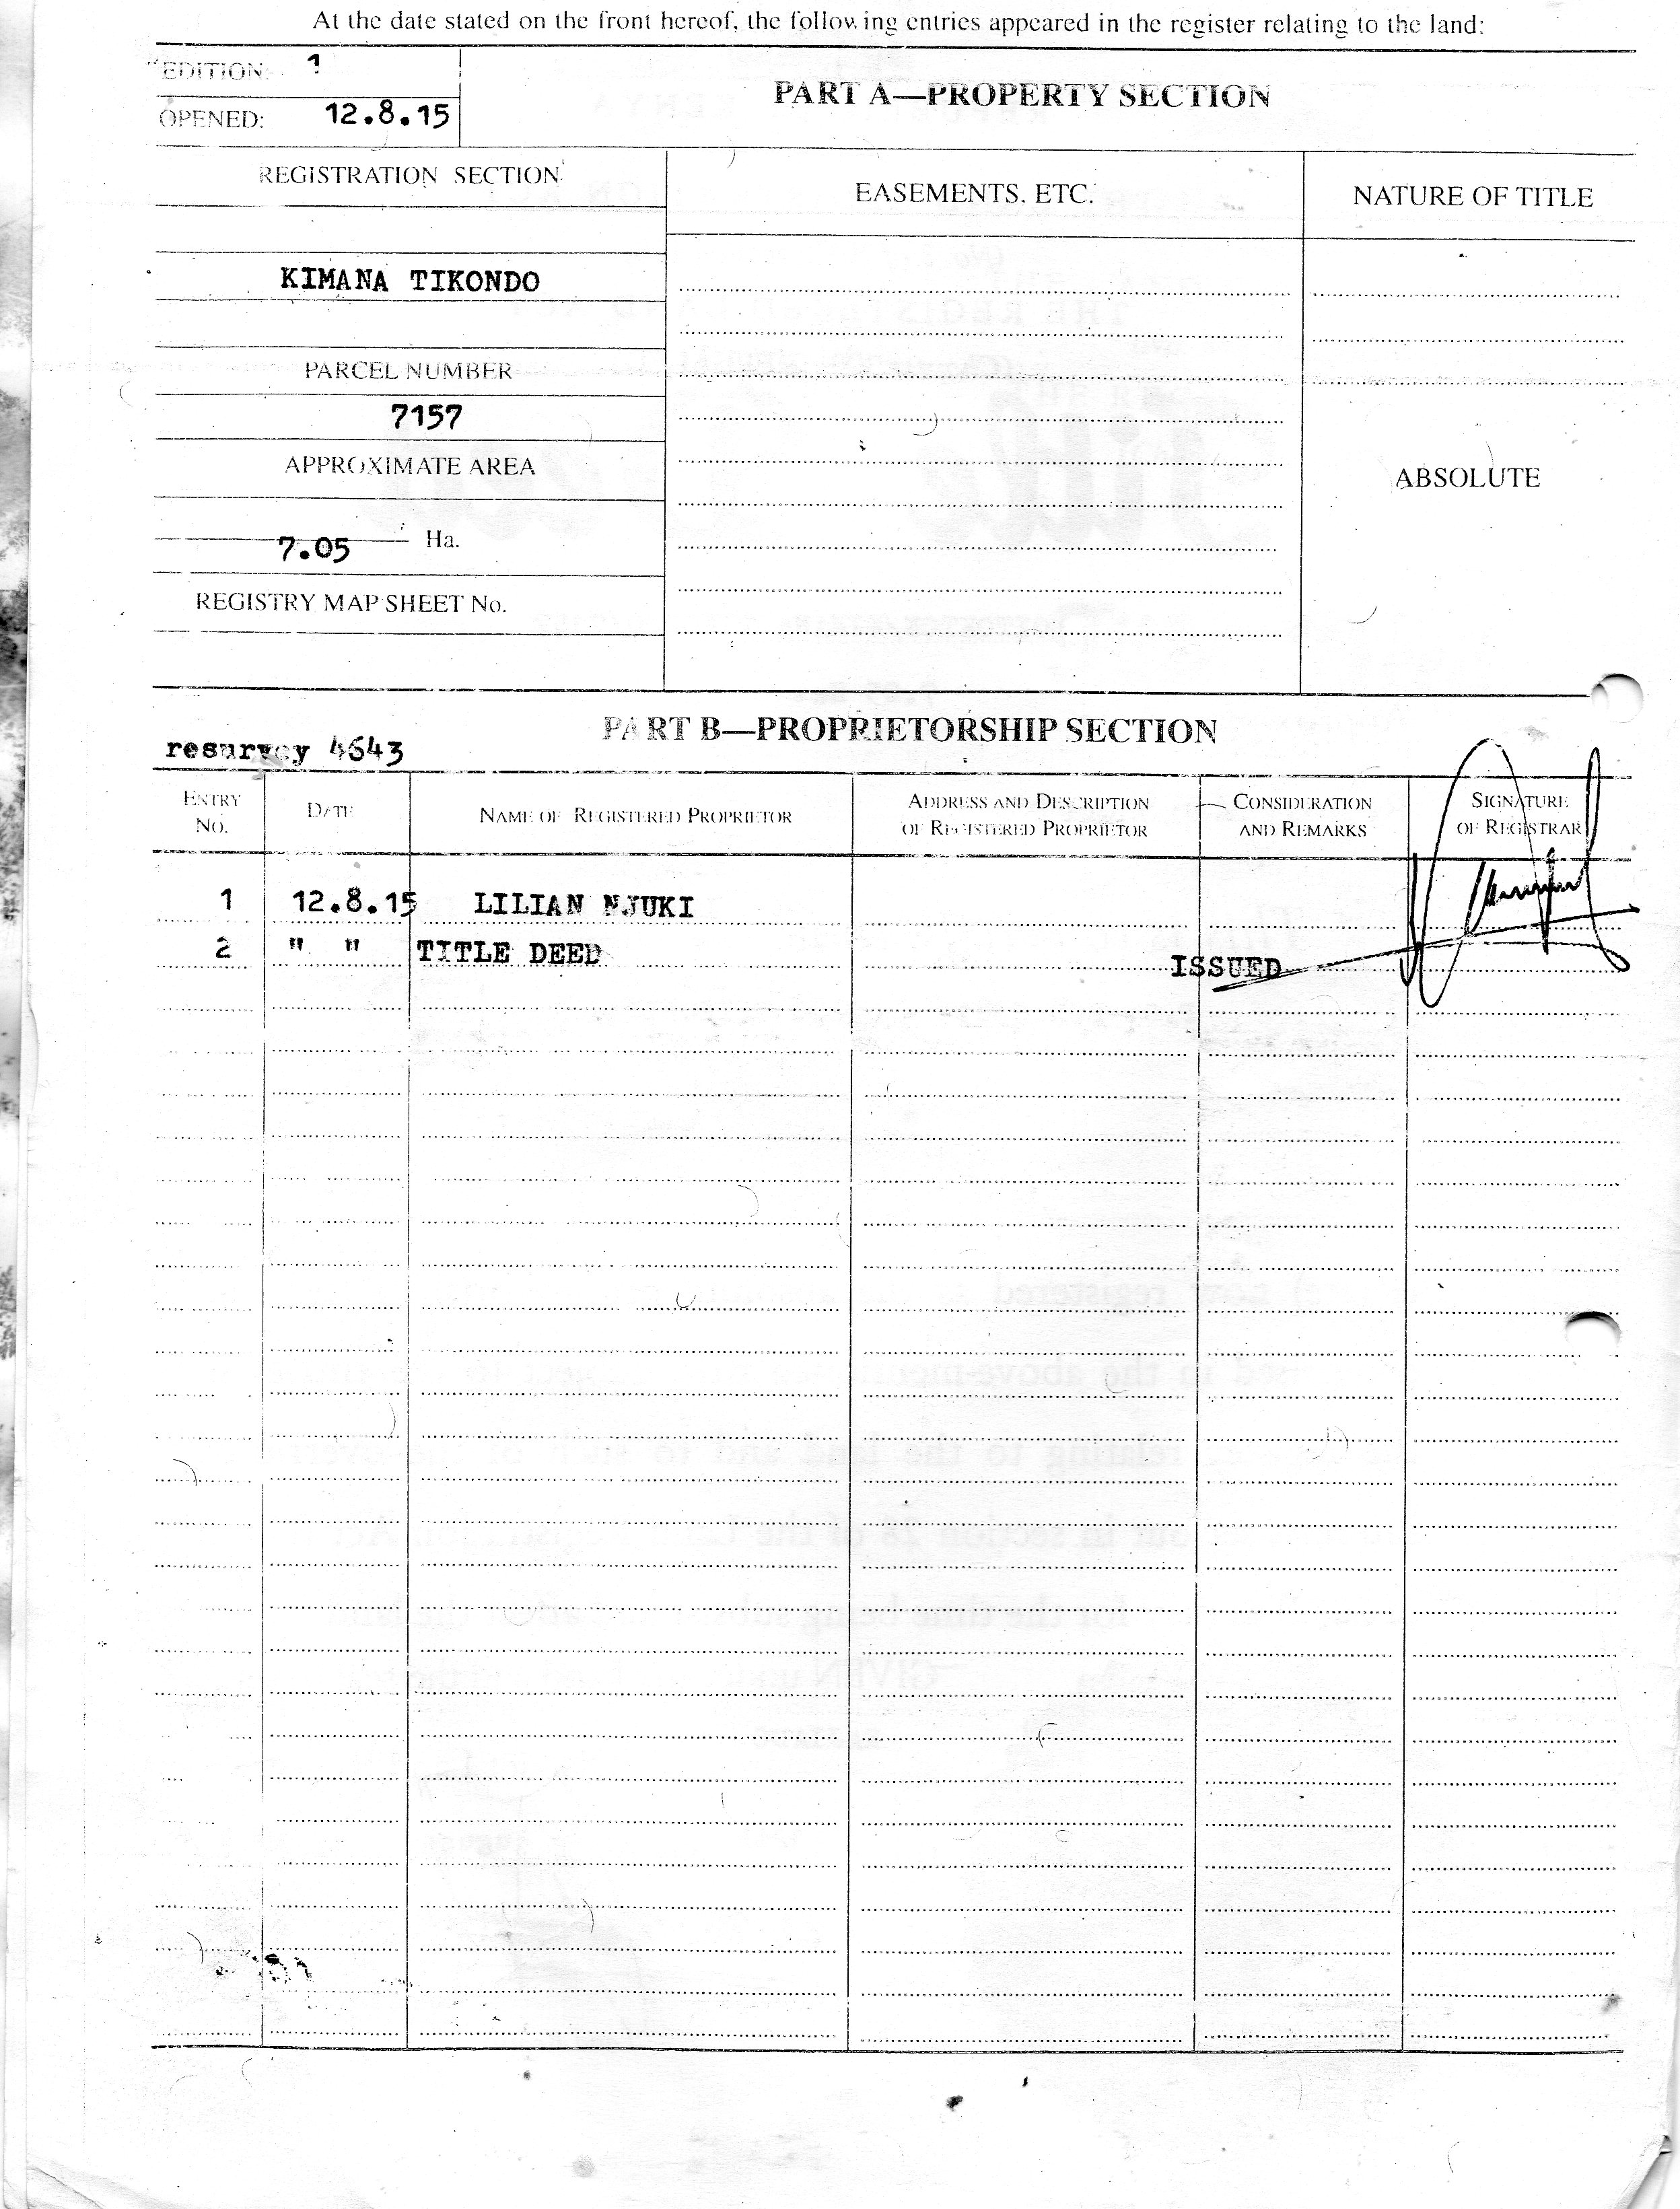 At the date stated on the front hereof, the following entries appeared in the register relating to the land:
EDITION: 1
OPENED: 12.8.15
PART A—PROPERTY SECTION
REGISTRATION SECTION
EASEMENTS, ETC.
NATURE OF TITLE
KIMANA TIKONDO
PARCEL NUMBER
7157
APPROXIMATE AREA
ABSOLUTE
7.05 Ha.
REGISTRY MAP SHEET No.
PART B—PROPRIETORSHIP SECTION
resurvey 4643
ENTRY No.
DATE
NAME OF REGISTERED PROPRIETOR
ADDRESS AND DESCRIPTION OF REGISTERED PROPRIETOR
CONSIDERATION AND REMARKS
SIGNATURE OF REGISTRAR
1 12.8.15 LILIAN NJUKI
2 " " TITLE DEED ISSUED